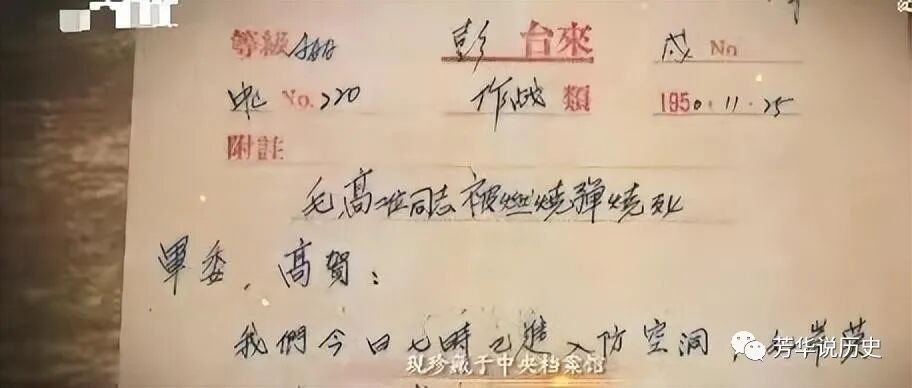 等級AAAA 彭台來 戌 No
中 No. 220 作战 類 1950.11.25
附註
毛高二位同志被燃燒彈燒死
軍委、高賀:
我們今日七時已進入防空洞,毛岸英
现珍藏于中央档案馆
芳华说历史